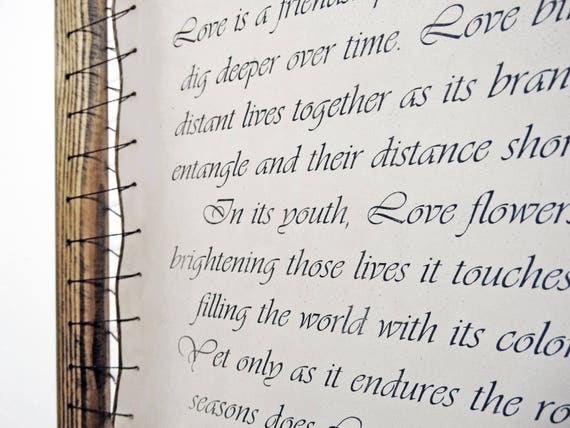 Love is a friends
dig deeper over time. Love bin
distant lives together as its bran
entangle and their distance shor
In its youth, Love flowers
brightening those lives it touches
filling the world with its color
Yet only as it endures the ro
seasons does